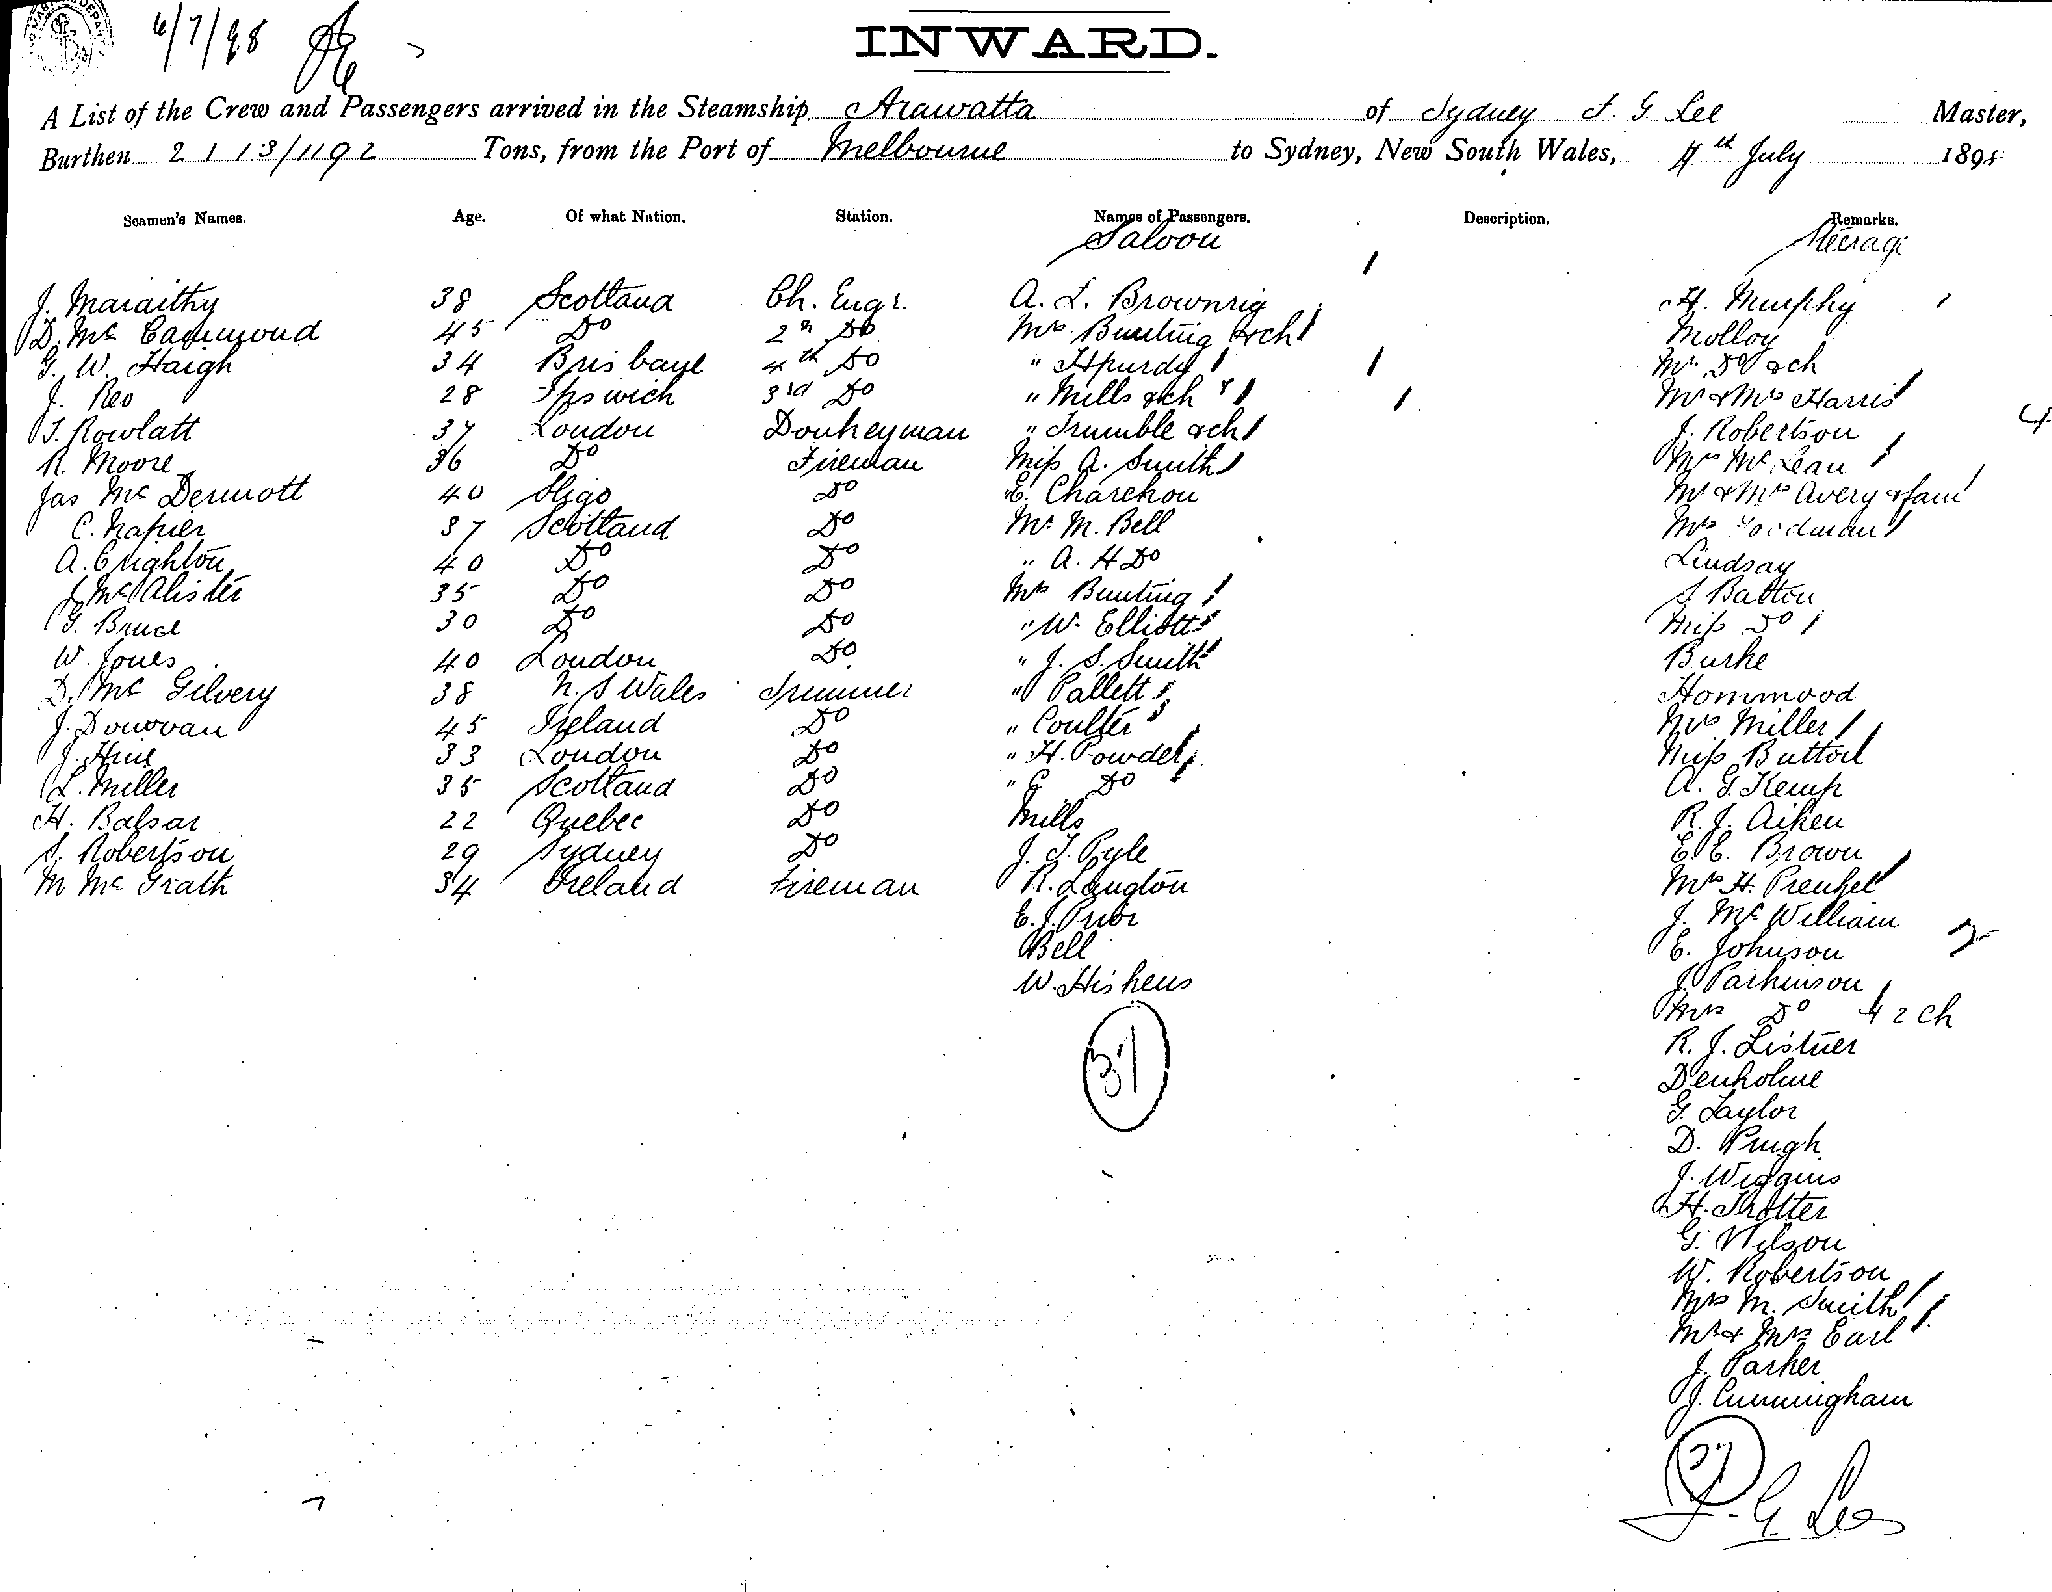 4/7/98
INWARD.
A List of the Crew and Passengers arrived in the Steamship Arawatta of Sydney J. G Lee Master,
Burthen 2113/1192 Tons, from the Port of Melbourne to Sydney, New South Wales, 4th July 1898
Seamen's Names. Age. Of what Nation. Station. Names of Passengers. Description. Remarks.
Saloon Steerage
J. 38 Scotland Ch. Engr. A. L. Brownrig H. Murphy
D. Mc Cammond 45 Do 2n Do Mrs Bunting & ch Molloy
G. W. Haigh 34 Brisbane 4th Do " Mr Do & ch
J. Reo 28 Ipswich 3rd Do " Mills & ch Mr & Mrs Harris
T. Rowlatt 37 London Donkeyman " Trumble & ch J. Robertson 4
R. Moore 36 Do Fireman Miss A. Smith Mrs McLean
Jas McDermott 40 Sligo Do E. Mr & Mrs Avery & fam
C. Napier 37 Scotland Do Mr M. Bell Mrs Goodman
A. Crighton 40 Do Do " A. H Do Lindsay
J McAlister 35 Do Do Mrs Bunting S Batton
G. Bruce 30 Do Do " W. Elliott Miss Do
W. Jones 40 London Do " J. S. Smith Burke
D. McGilvery 38 N. S Wales Trimmer " Pallett Hommood
J. Donovan 45 Ireland Do " Coulter Mrs Miller
J. Hine 33 London Do " H. Powdel Miss
L. Miller 35 Scotland Do " E Do A. G. Kemp
H. Balsar 22 Quebec Do Mills R. J. Aiken
S. Robertson 29 Sydney Do J. J. Pyle E. E. Brown
M McGrath 34 Ireland Fireman R. Langton Mrs H. Prenzel
E. J. Prior J. McWilliam
Bell E. Johnson
W. Hiskens J Parkinson
Mrs Do & 2 ch
37 R. J. Listner
Denholme
G. Taylor
D. Pugh
J. Wiggins
H. Trotter
G. Wilson
W. Robertson
Mrs M. Smith
Mr & Mrs Earl
J. Parker
J. Cunningham
37
J. G. Lee